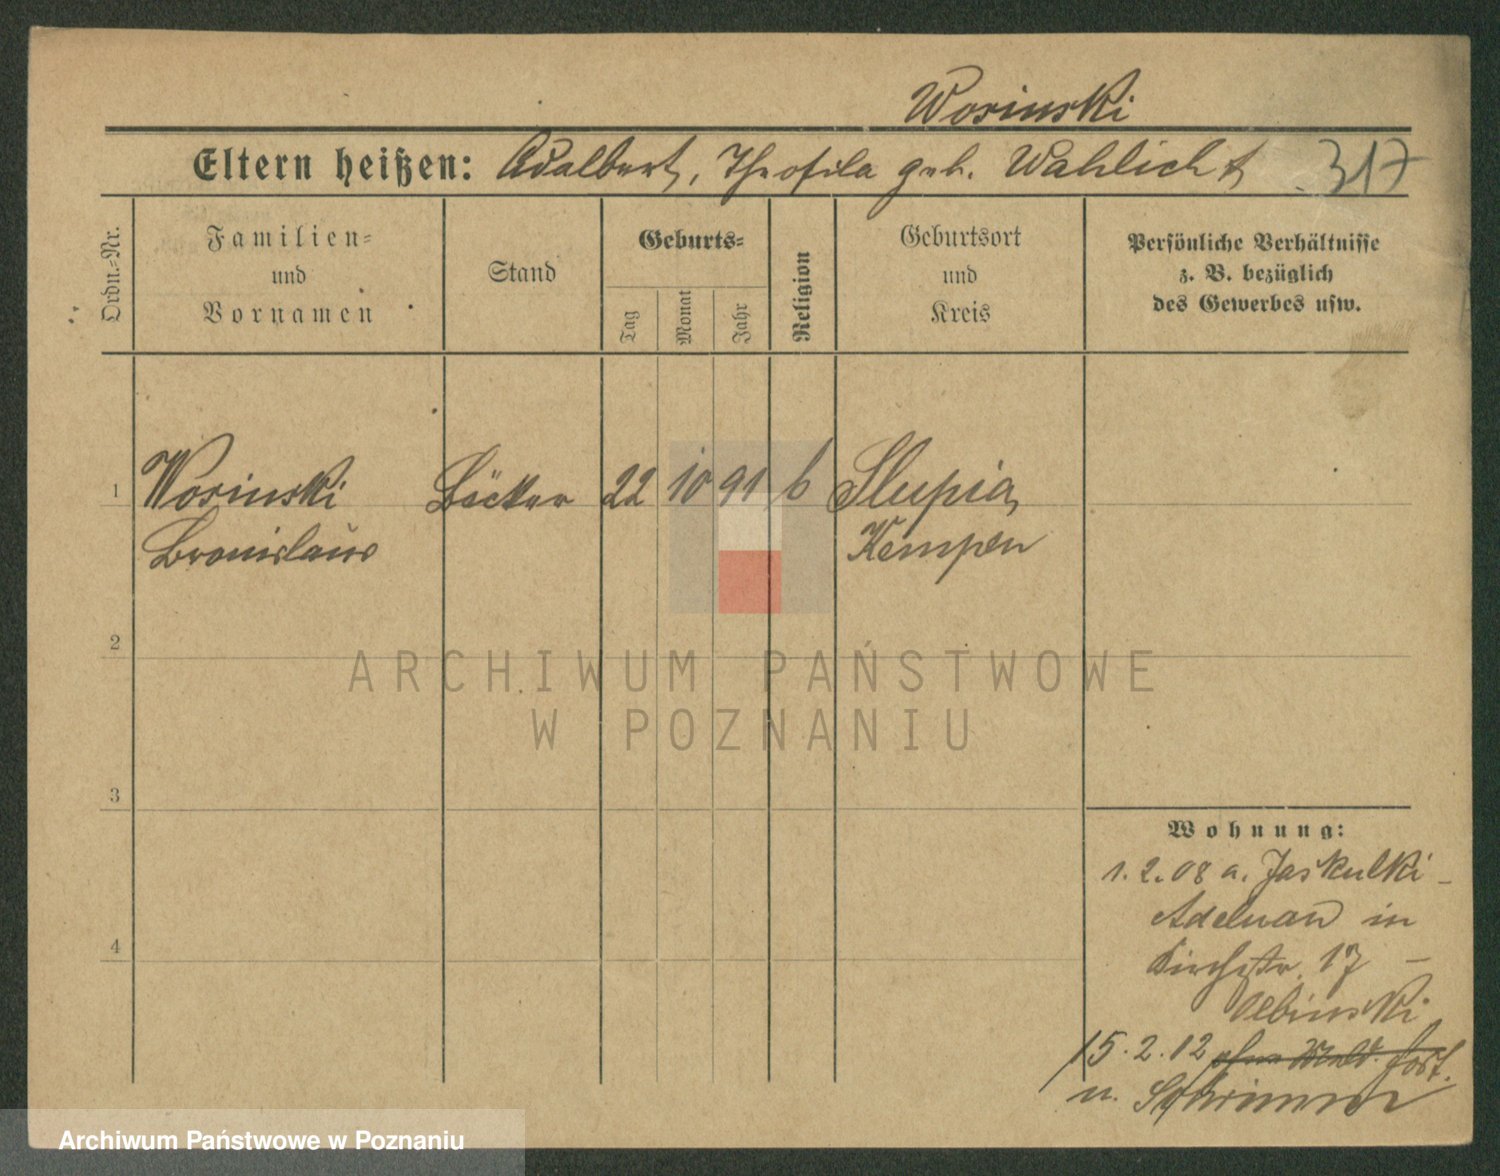 Wosinski
Eltern heißen: Adalbert, Theofila geb. Wahlicht 317
Ordn.-Nr.
Familien-
und
Vornamen
Stand
Geburts-
Tag
Monat
Jahr
Religion
Geburtsort
und
Kreis
Persönliche Verhältnisse
z. B. bezüglich
des Gewerbes usw.
1 Wosinski Bäcker 22 10 91 k Slupia,
Bronislaus Kempen
2
3
4
Wohnung:
1.2.08 a. Jaskulki-
in
Kirchstr. 17 –
Olbinski
15.2.12 ohne Meld. fort.
n. Schrimm
ARCHIWUM PAŃSTWOWE
W POZNANIU
Archiwum Państwowe w Poznaniu